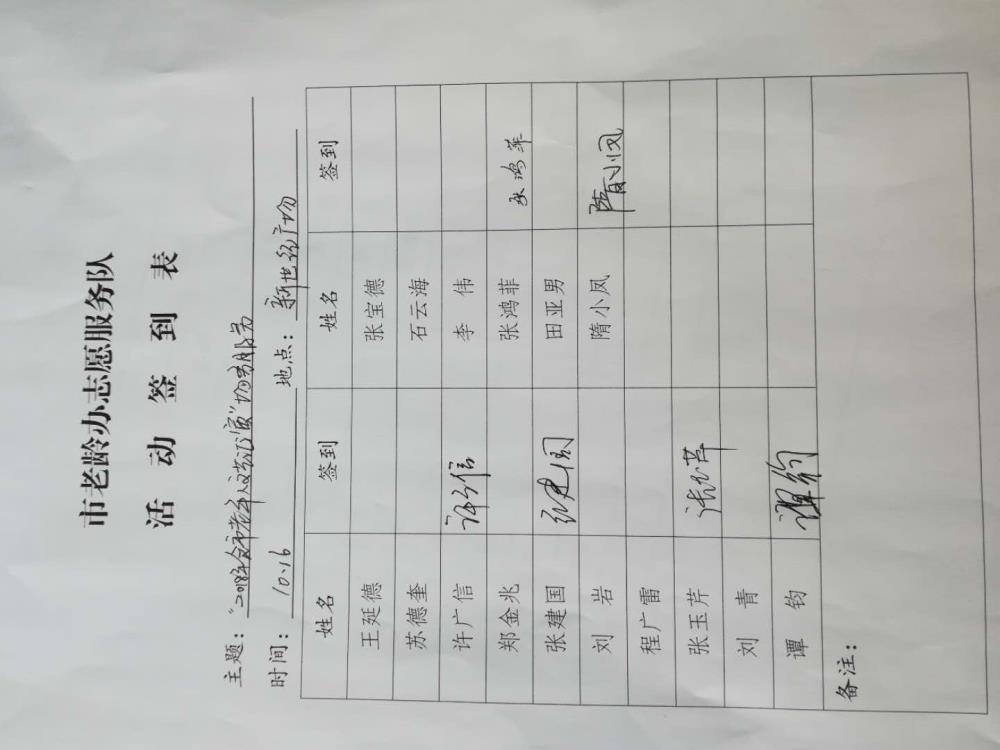 市老龄办志愿服务队
活动签到表
主题："2018年全市老年人文艺汇演"切身服务
时间：10.16 地点：新世纪广场
姓名 签到 姓名 签到
王延德 张宝德
苏德奎 石云海
许广信 许广信 李伟
郑金兆 张鸿菲 张鸿菲
张建国 张建国 田亚男
刘岩 隋小凤 隋小凤
程广雷
张玉芹 张玉芹
刘青
谭钧 谭钧
备注：